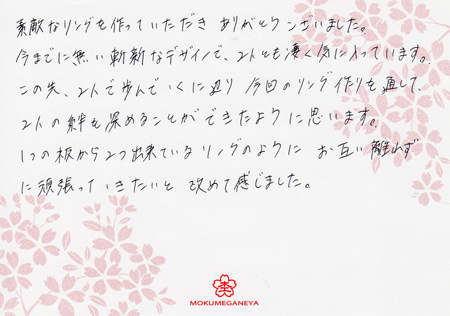 素敵なリングを作っていただき ありがとうございました。
今までに無い斬新なデザインで、2人とも凄く気に入っています。
この先、2人で歩んでいくに辺り 今回のリング作りを通して、
2人の絆を深めることができたように思います。
1つの板から2つ出来ているリングのように お互い離れず
に頑張っていきたいと 改めて感じました。
MOKUMEGANEYA